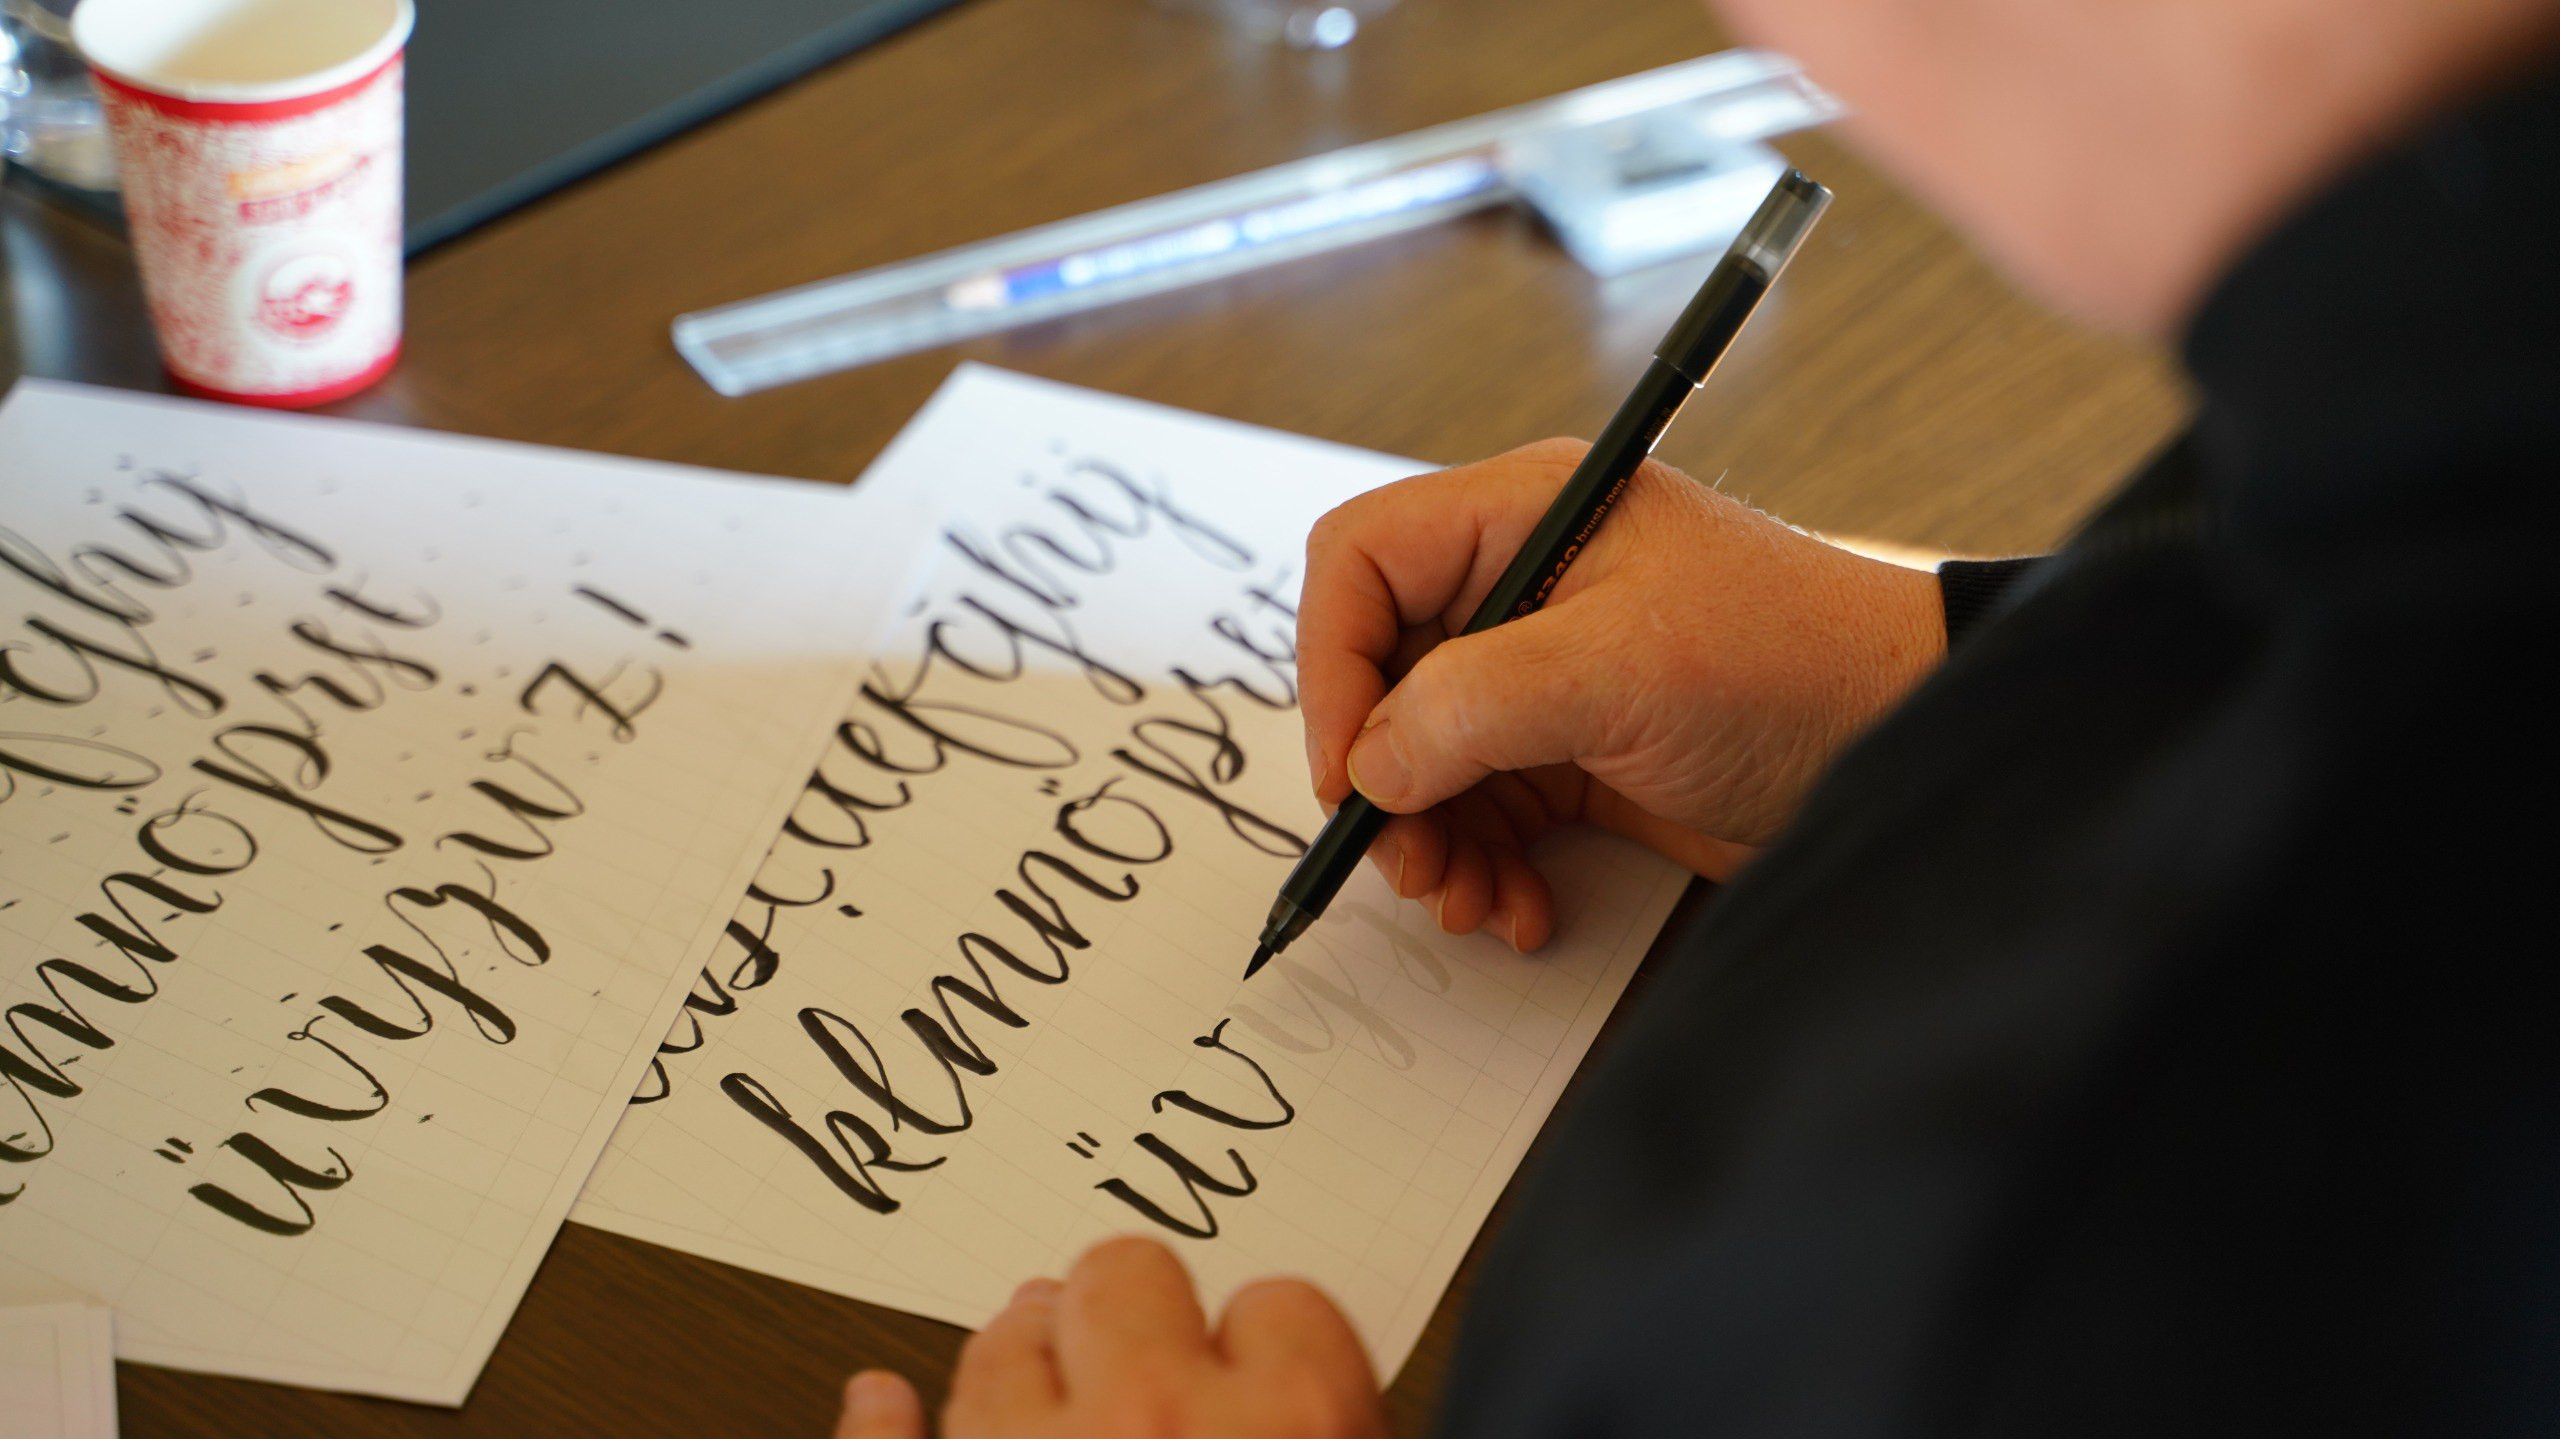 ghij
mnöprst
üvyzwz!
defghij
klmnöprst
üvyz
1340 brush pen